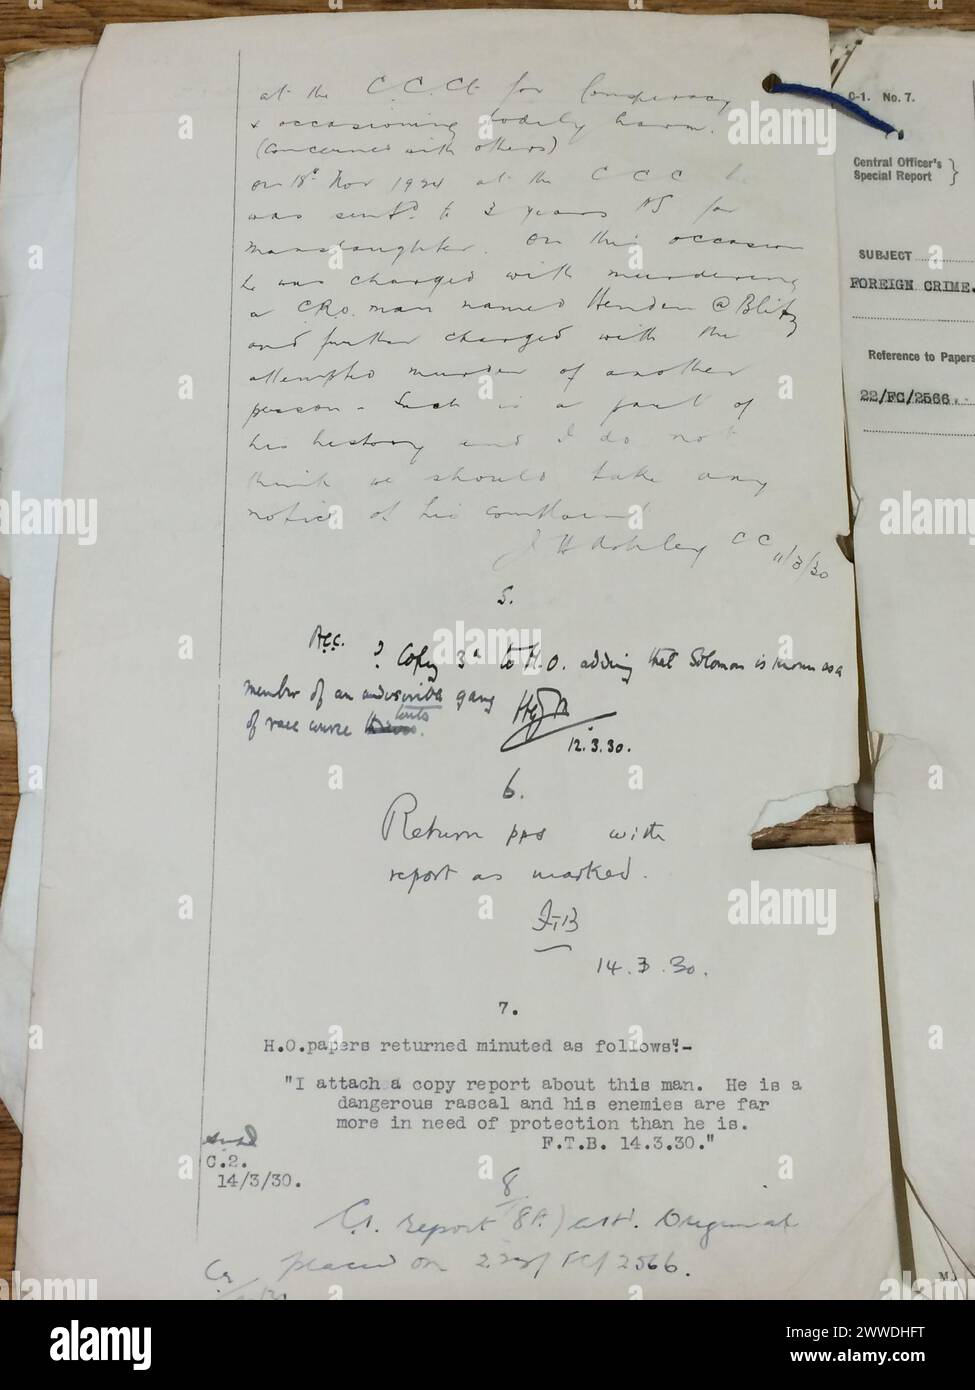 at the C.C.Ct for Conspiracy
& occasioning bodily harm.
(Concerned with others)
on 18th Nov 1924 at the C C C he
was sentd. to 3 years PS for
manslaughter. On this occasion
he was charged with murdering
a CRO. man named Henden @ Blitz
and further charged with the
attempted murder of another
person - Such is a part of
his history and I do not
think we should take any
notice of his complaint
J H Ashley CC 11/3/30
5.
Acc. ? Copy 3A to H.O. adding that Solomon is known as a
member of an undesirable gang
of race course touts.
12.3.30.
6.
Return pps with
report as marked.
F.T.B
14.3.30.
7.
H.O.papers returned minuted as follows:-
"I attach a copy report about this man. He is a
dangerous rascal and his enemies are far
more in need of protection than he is.
F.T.B. 14.3.30."
C.2.
14/3/30.
8
C.1. report 8A) attd. Original
placed on 22/FC/2566.
C-1. No. 7.
Central Officer's
Special Report
SUBJECT
FOREIGN CRIME.
Reference to Papers
22/FC/2566.
alamy
alamy
Image ID: 2WWDHFT
www.alamy.com